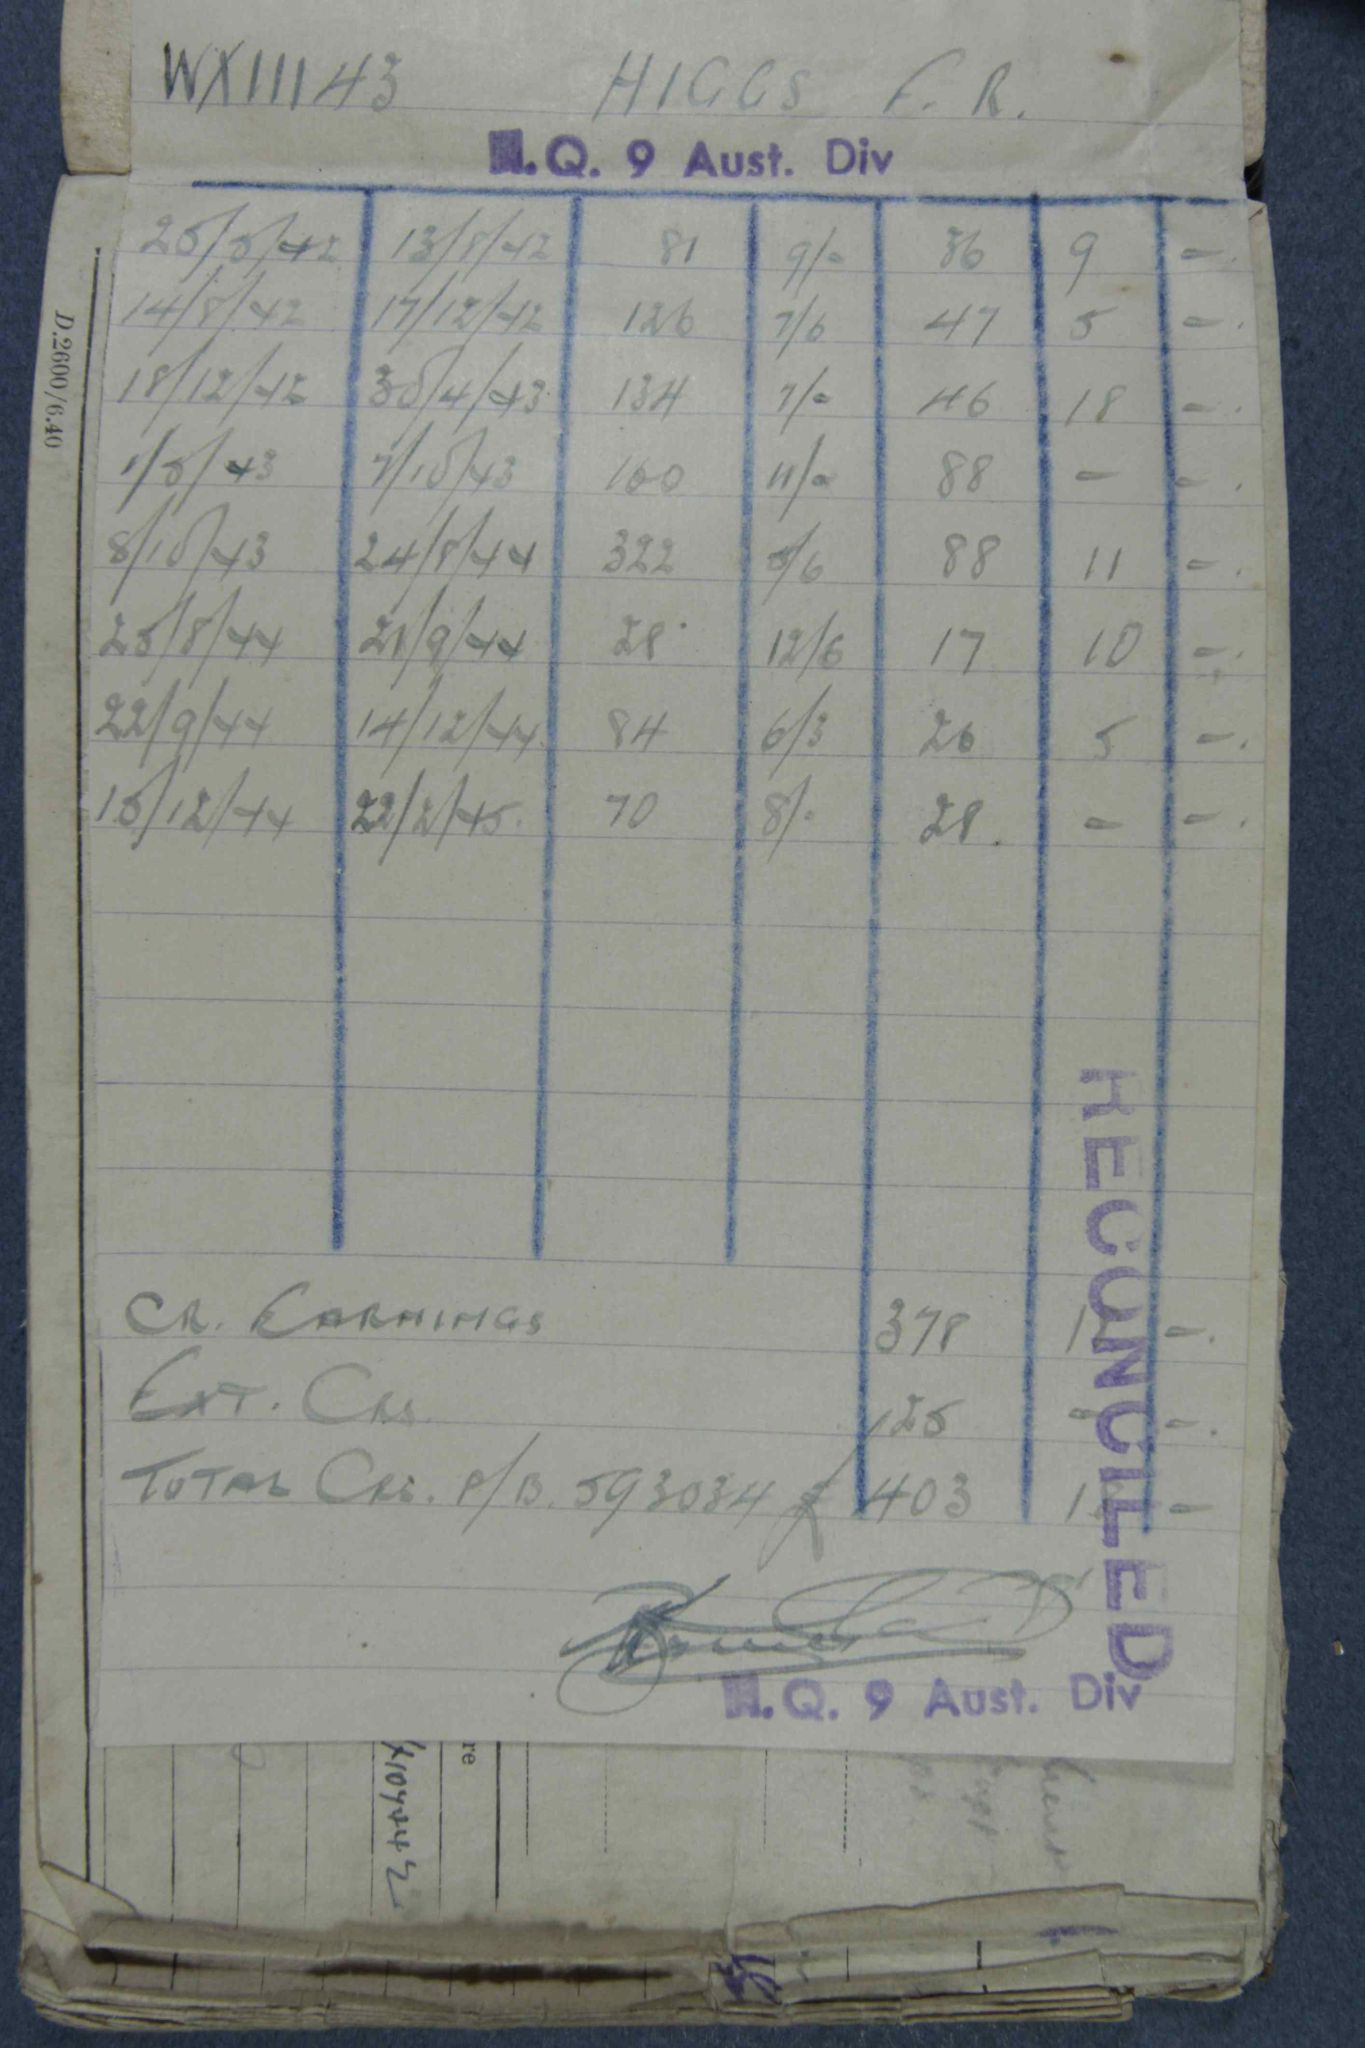 WX11143 HIGGS F. R.
H.Q. 9 Aust. Div
25/5/42 13/8/42 81 9/- 36 9 -.
14/8/42 17/12/42 126 7/6 47 5 -.
18/12/42 30/4/43 134 7/- 46 18 -.
1/5/43 7/10/43 160 11/- 88 - -.
8/10/43 24/8/44 322 5/6 88 11 -.
25/8/44 21/9/44 28 12/6 17 10 -.
22/9/44 14/12/44 84 6/3 26 5 -.
15/12/44 22/2/45. 70 8/- 28. - -.
CR. EARNINGS 378 18 -.
EXT. CRS. 25 - -.
TOTAL CRS. P/B. 593034 £ 403 18 -
RECONCILED
H.Q. 9 Aust. Div
D.2600/6.40
re